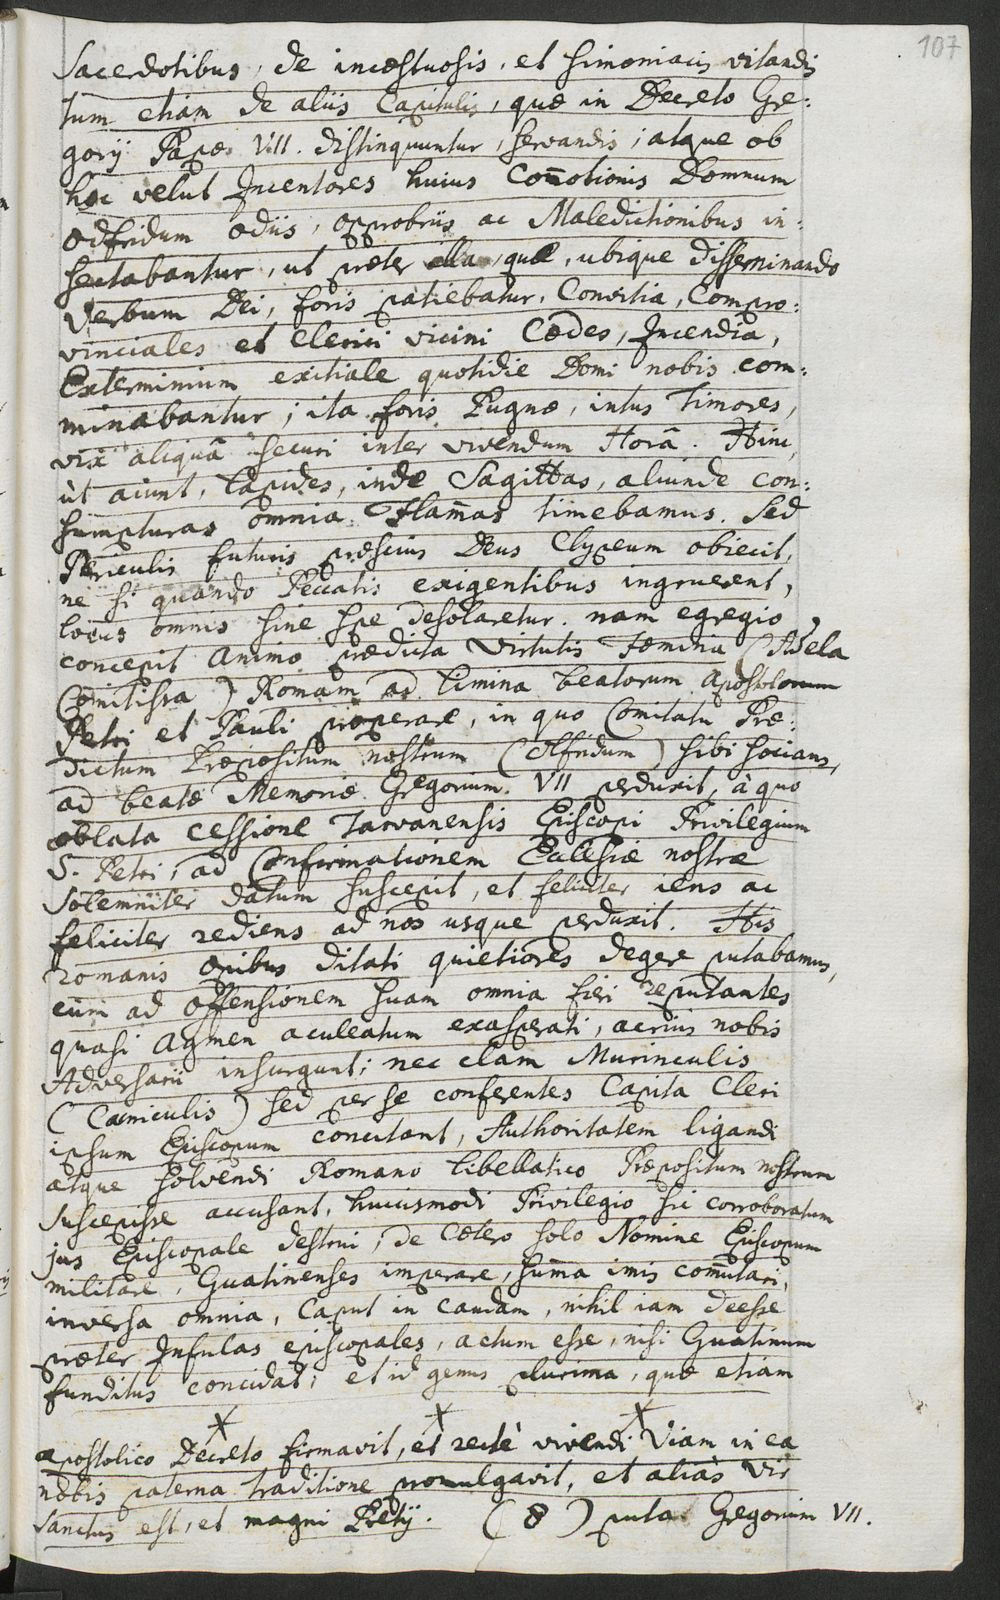 107
Sacerdotibus, de incæstuosis, et simoniacis vitandis
tum etiam de aliis Capitulis, quæ in Decreto Gre:
gorij Papæ VII. distinquuntur, servandis; atque ob
hoc velut Incentores huius Com̄otionis Domnum
Odfridum odiis, opprobriis ac Maledictionibus in:
sectabantur, ut præter illa, quæ, ubique disseminando
Verbum Dei, foris patiebatur, Convitia, Compro:
vinciales et Clerici vicini Cædes, Incendia,
Exterminium exitiale quotidie Domi nobis com:
minabantur; ita foris Pugnæ, intus Timores,
vix aliquâ securi inter vivendum Horâ. Hinc,
ùt aiunt, Lapides, inde Sagittas, aliunde con:
sumpturas omnia Flam̄as timebamus. Sed
Periculis futuris præscius Deus Clypeum obiecit,
ne si quando Peccatis exigentibus ingruerent,
locus omnis sine spe desolaretur. nam egregio
concepit Animo prædicta Virtutis Fæmina (Adela
Comitissa) Romam ad Limina beatorum Apostolorum
Petri et Pauli properare, in quo Comitatu Præ:
dictum Præpositum nostrum (Olfridum) sibi socians,
ad beatæ Memoriæ Gregorium VII perduxit, à quo
oblata cessione Tarvanensis Episcopi Privilegium
S. Petri, ad Confirmationem Ecclesiæ nostræ
Solemniter datum suscepit, et feliciter iens ac
feliciter rediens ad nos usque perduxit. His
romanis opibus ditati quietiores degere putabamus,
cùm ad offensionem suam omnia fieri reputantes
quasi Agmen aculeatum exasperati, acrius nobis
Adversarii insurgunt; nec clam Murinculis
(Cuniculis) sed per se conferentes Capita Cleri
ipsum Episcopum concitant, Authoritatem ligandi
atque solvendi Romano libellatico Præpositum nostrum
Suscepisse accusant, hucusmodi Privilegio sic corroboratum
jus Episcopale destrui, de Cætero solo Nomine Episcopum
militare, Guatinenses imperare, sum̄a imis com̄utari,
inversa omnia, Caput in caudam, nihil iam deesse
præter Infulas episcopales, actum esse, nisi Guatinum
funditus concidat; et id genus plurima, quæ etiam
apostolico Decreto firmavit, et rectè vivendi Viam in ea
nobis paterna traditione promulgavit, et aliàs Vir
Sanctus est, et magni Pretij. (8) puta Gregorium VII.